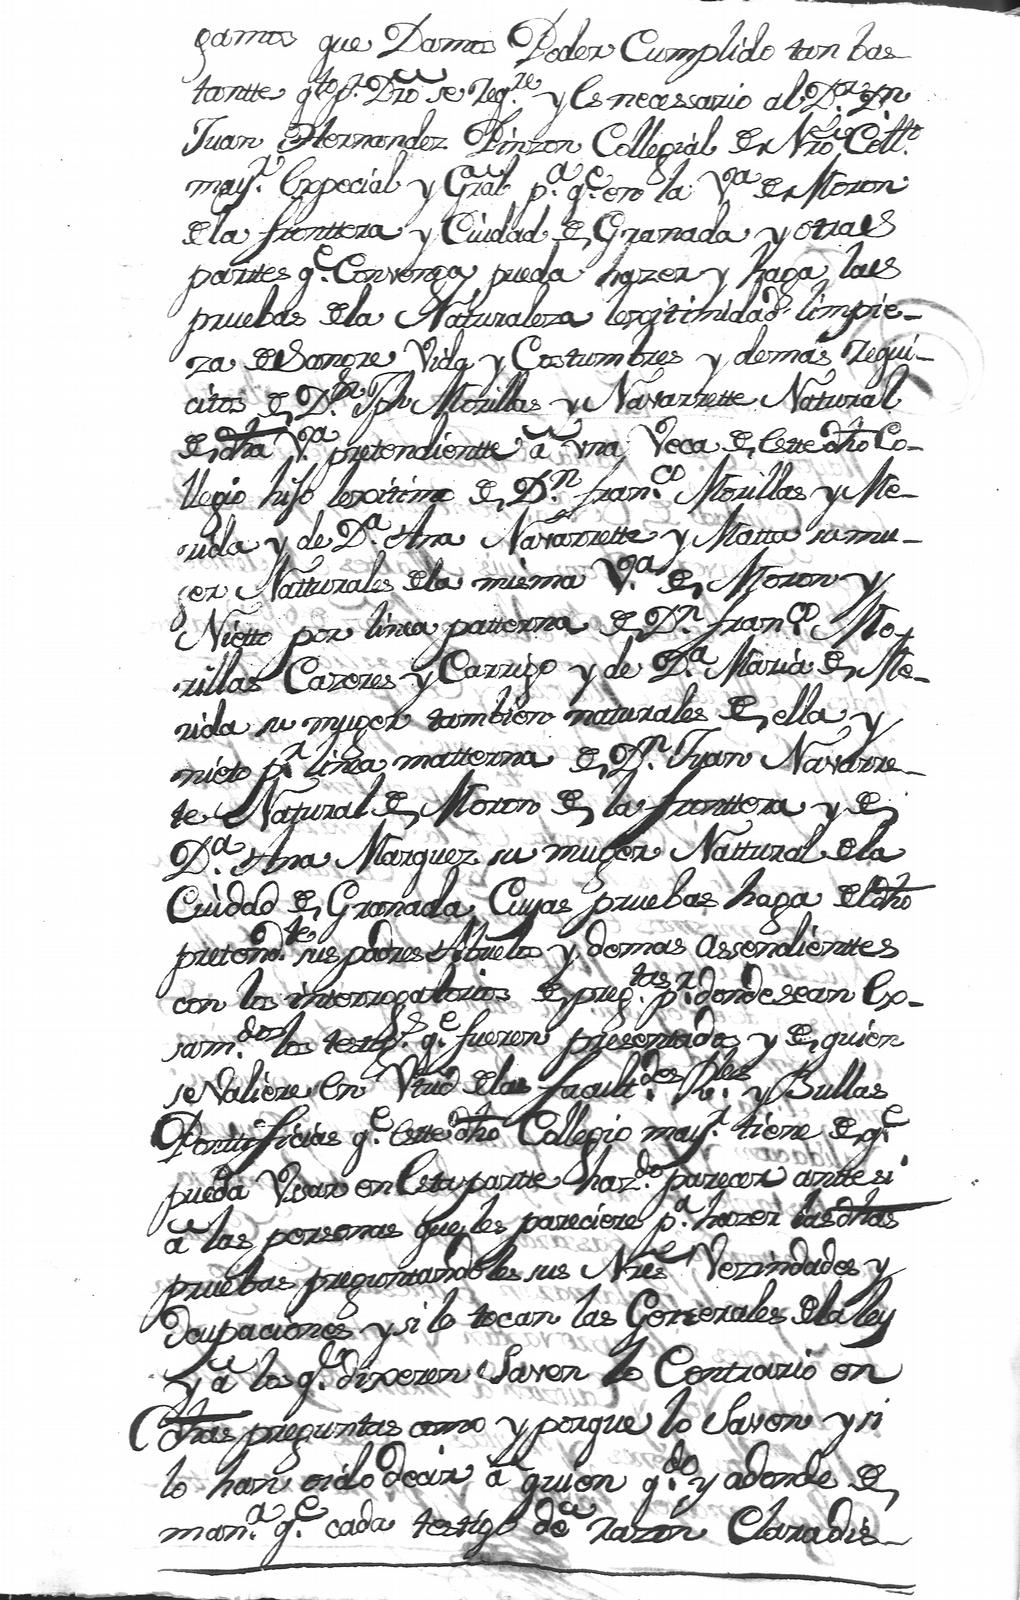 gamos que Damos Poder Cumplido tan bas-
tantte qto pr. Dro se reqre y es necessario al Dor. Dn
Juan Hernandez Pinzon Collegial de Nro Colo.
mayr. Especial y Gral pa. qe. en la Va de Moron
de la fronttera y Ciudad de Granada y otras
parttes qe. Convenga pueda hazer y haga las
pruebas de la Naturaleza legitimidad limpie-
za de Sangre Vida y Costumbres y demas requi-
citos de Dn. Jph Morillas y Navarrette Natural
de dha Va. pretendientte â Vna Veca de Este dho Co-
llegio hijo legitimo de Dn. franco. Morillas y Me-
rida y de Da. Ana Navarrette y Matta su mu-
ger Natturales de la misma Va. de Moron y
Nietto por linea patterna de Dn. franco. Mo-
rillas Cazeres y Carrizo y de Da. Maria de Me-
rida su muger tambien naturales de ella y
nieto pr. linea matterna de Dn. Juan Navarre-
te Natural de Moron de la fronttera y de
Da. Ana Marquez su muger Nattural de la
Ciudad de Granada Cuyas pruebas haga del dho
pretendte. sus padres Abuelos y demas assendienttes
con los interrogatorios de pregtas. pr. donde sean Ex-
samdos. los testigs. qe. fueren presentados y de quien
se Valiere en Vtud de las facultdes. Rles. y Bullas
Pontificias qe. Este dho Collegio mayr. tiene de qe.
pueda Vsar en Esta partte hazdo. parezer antte si
â las personas que les pareciere pa. hazer las dhas
pruebas preguntandoles sus Nres Vezindades y
Ocupaciones y si le tocan las Generales de la ley
y â los qe. dixeren Saven lo Contrario en
dhas preguntas como y porque lo Saven y si
lo han oido decir â quien qdo. y adonde de
mana. qe. cada testigo dê razon Clara dis-